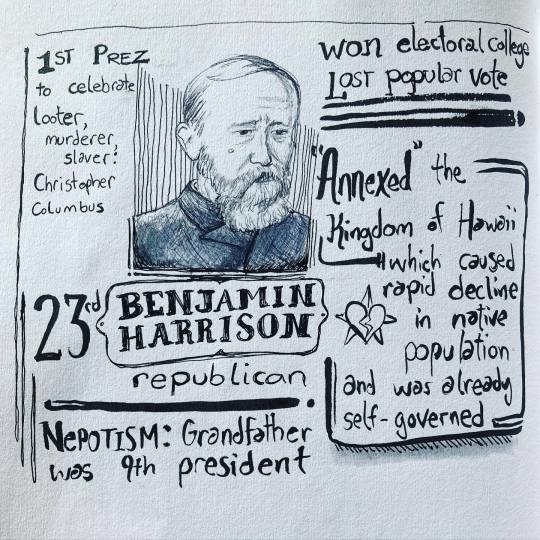 1ST PREZ
to celebrate
looter,
murderer,
slaver:
Christopher
Columbus
won electoral college
LOST popular vote
"Annexed" the
Kingdom of Hawaii
which caused
rapid decline
in native
population
and was already
self-governed
23rd BENJAMIN
HARRISON
republican
NEPOTISM: Grandfather
was 9th president